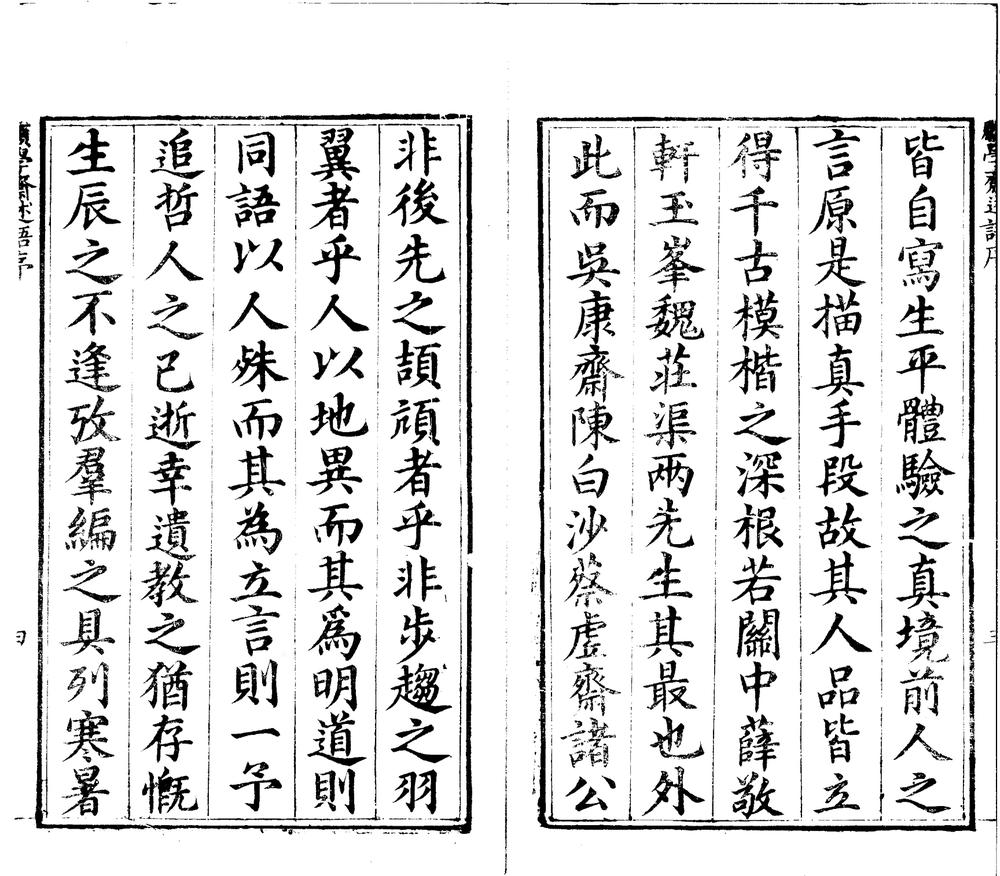 皆自寫生平體驗之真境前人之
言原是描真手段故其人品皆立
得千古模楷之深根若關中薛敬
軒玉峯魏莊渠兩先生其最也外
此而吳康齋陳白沙蔡虛齋諸公
非後先之頡頏者乎非步趨之羽
翼者乎人以地異而其爲明道則
同語以人殊而其為立言則一予
追哲人之已逝幸遺教之猶存慨
生辰之不逢攷羣編之具列寒暑